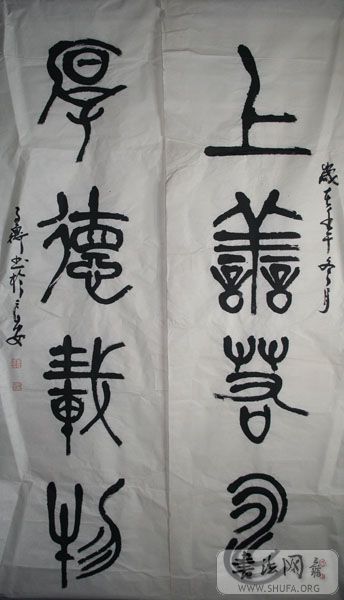 歲在壬午冬月
上善若水
厚德載物
書於長安
書法网
WWW.SHUFA.ORG